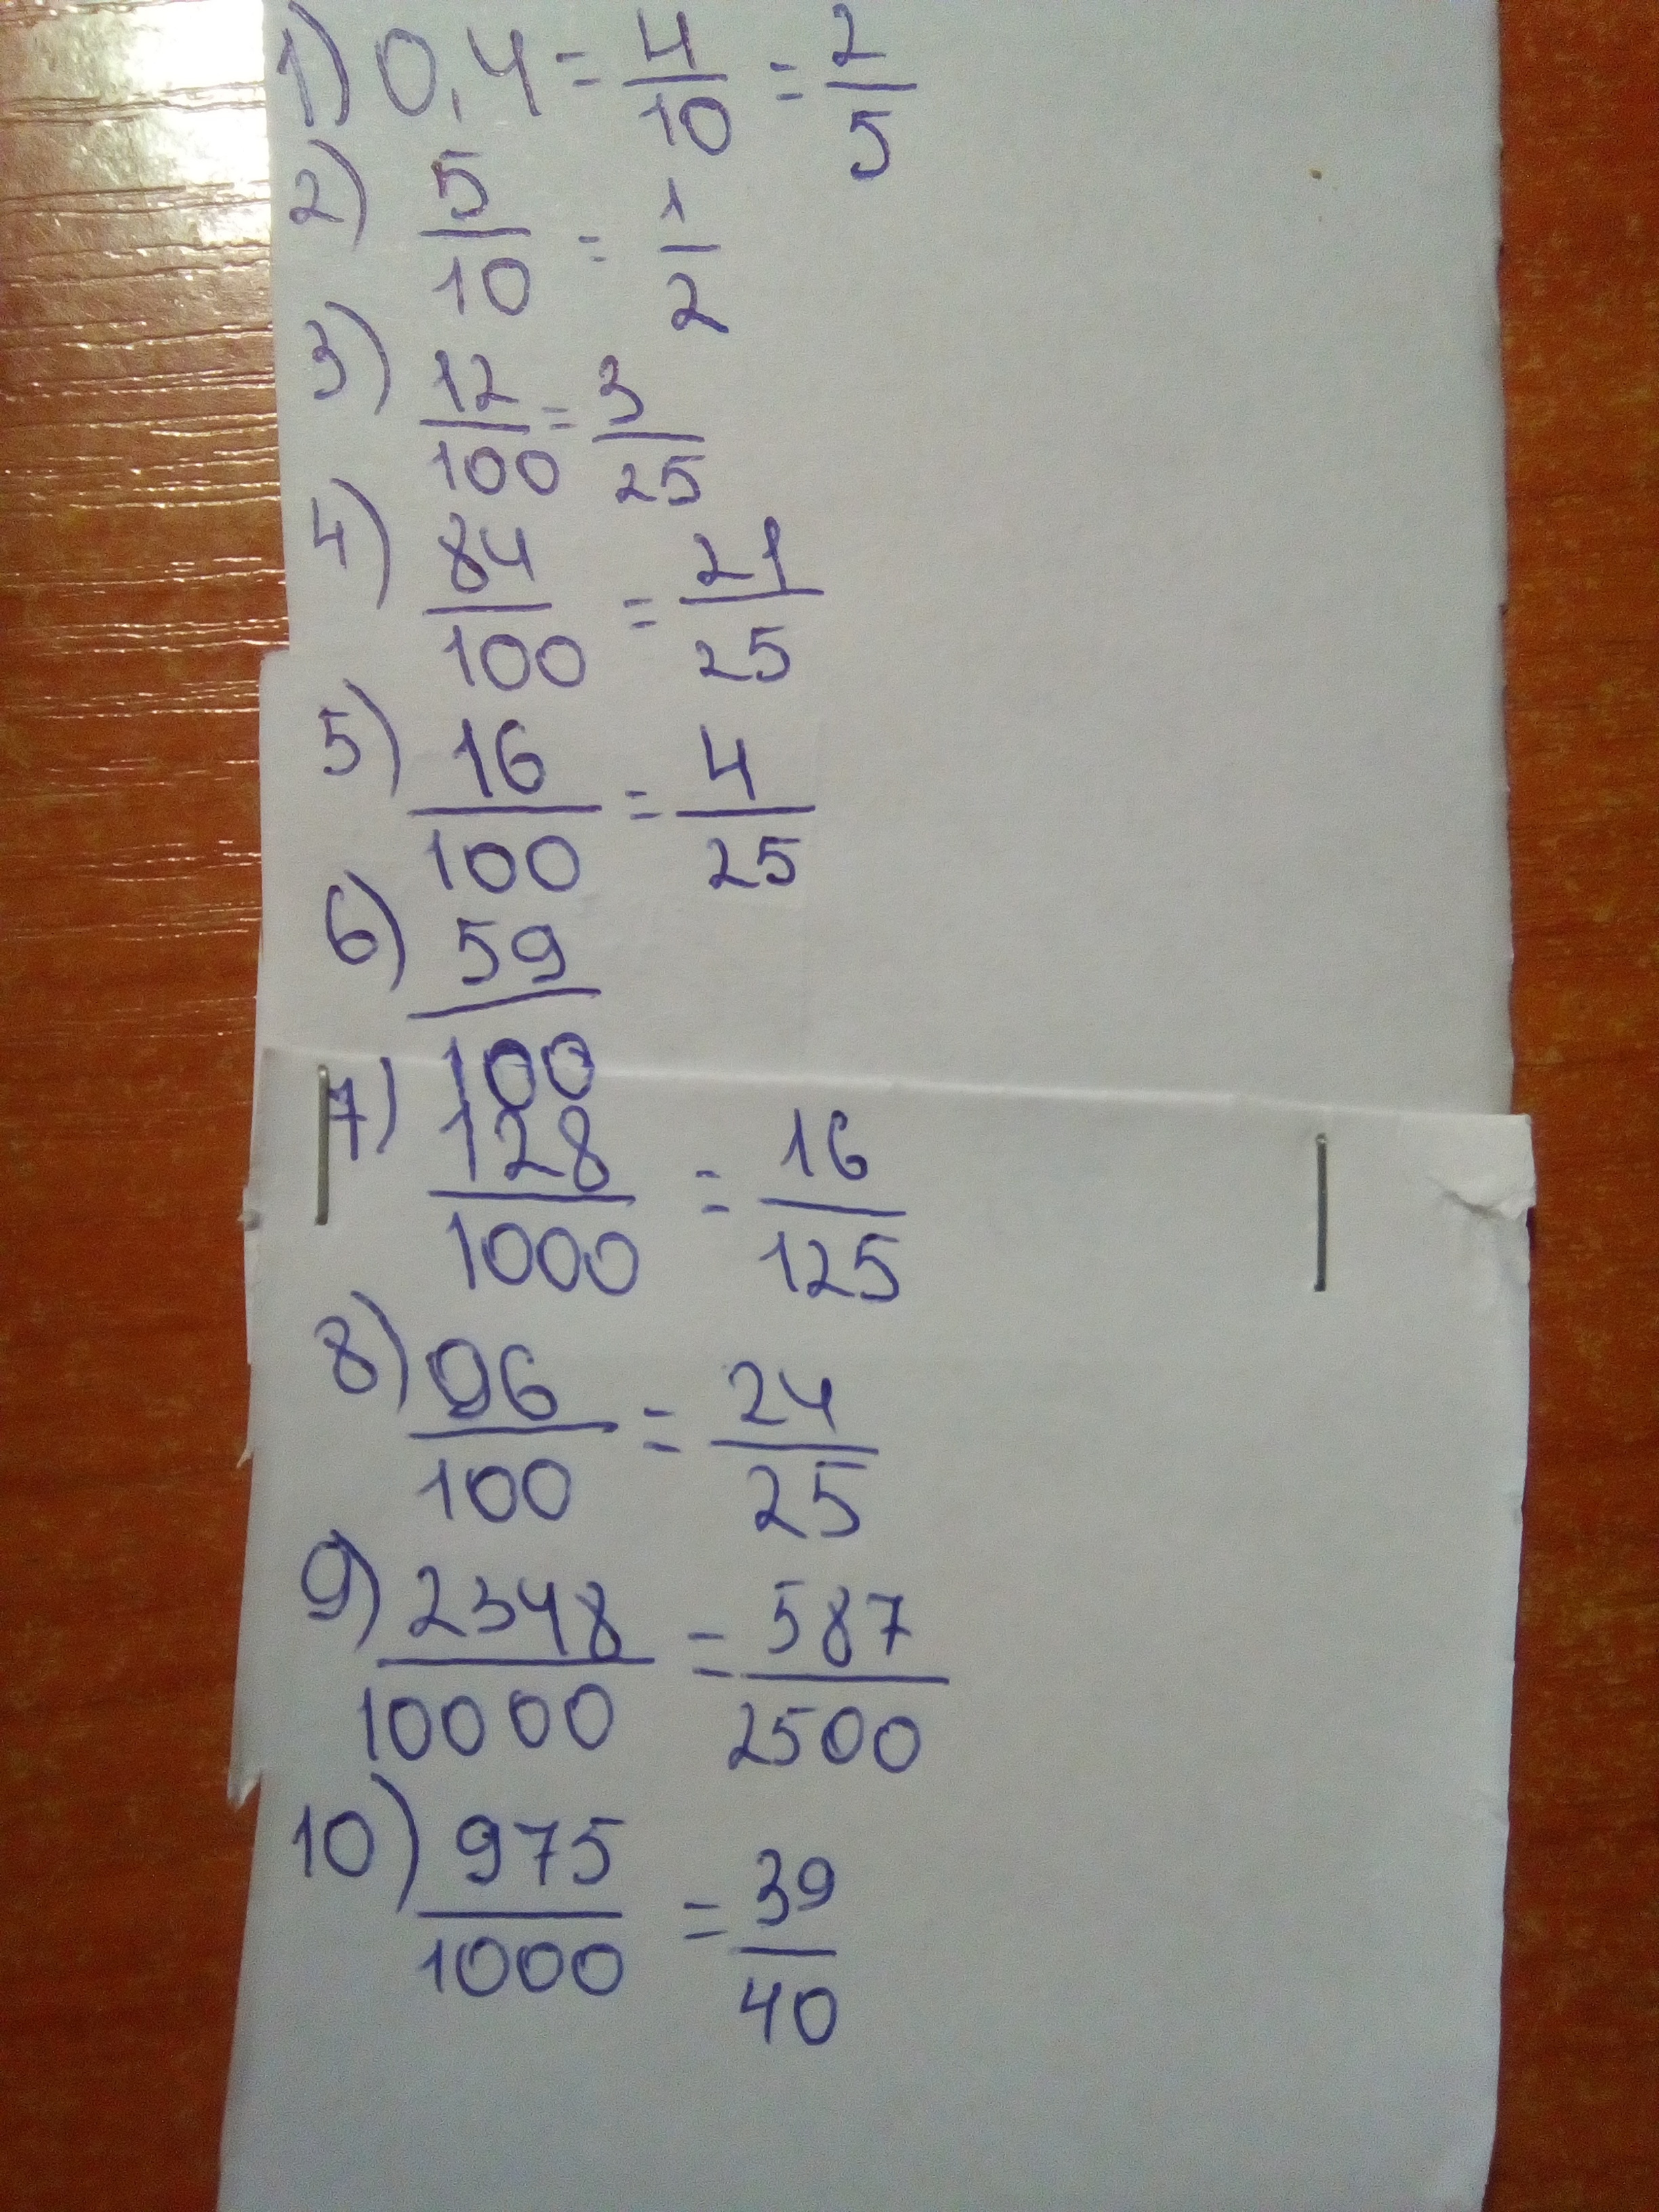 1) 0,4 = 4/10 = 2/5
2) 5/10 = 1/2
3) 12/100 = 3/25
4) 84/100 = 21/25
5) 16/100 = 4/25
6) 59/100
7) 128/1000 = 16/125
8) 96/100 = 24/25
9) 2348/10000 = 587/2500
10) 975/1000 = 39/40